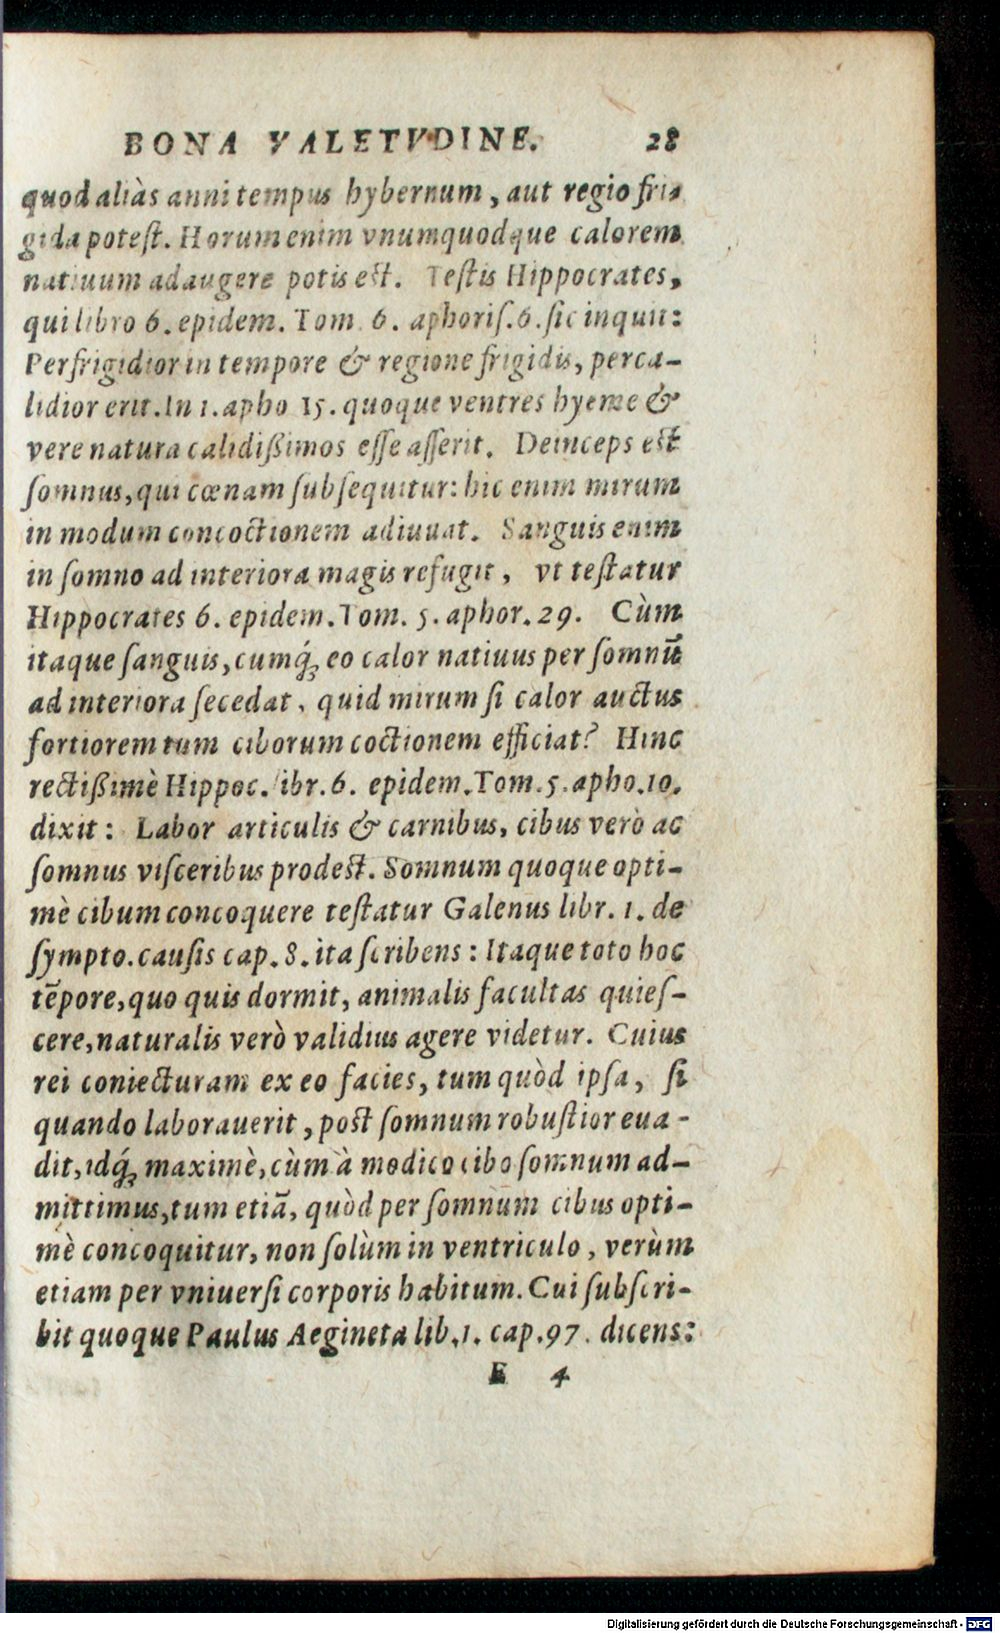 BONA VALETVDINE. 28
quod aliàs anni tempus hybernum, aut regio fri-
gida potest. Horum enim vnumquodque calorem
natiuum adaugere potis est. Testis Hippocrates,
qui libro 6. epidem. Tom. 6. aphoris. 6. sic inquit:
Perfrigidior in tempore & regione frigidis, perca-
lidior erit. In 1. apho 15. quoque ventres hyeme &
vere natura calidißimos esse asserit. Deinceps est
somnus, qui cœnam subsequitur: hic enim mirum
in modum concoctionem adiuuat. Sanguis enim
in somno ad interiora magis refugit, vt testatur
Hippocrates 6. epidem. Tom. 5. aphor. 29. Cùm
itaque sanguis, cumq́; eo calor natiuus per somnū
ad interiora secedat, quid mirum si calor auctus
fortiorem tum ciborum coctionem efficiat? Hinc
rectißimè Hippoc. libr. 6. epidem. Tom. 5. apho. 10.
dixit: Labor articulis & carnibus, cibus verò ac
somnus visceribus prodest. Somnum quoque opti-
mè cibum concoquere testatur Galenus libr. 1. de
sympto. causis cap. 8. ita scribens: Itaque toto hoc
tēpore, quo quis dormit, animalis facultas quies-
cere, naturalis verò validius agere videtur. Cuius
rei coniecturam ex eo facies, tum quòd ipsa, si
quando laborauerit, post somnum robustior eua-
dit, idq́; maximè, cùm à modico cibo somnum ad-
mittimus, tum etiā, quòd per somnum cibus opti-
mè concoquitur, non solùm in ventriculo, verùm
etiam per vniuersi corporis habitum. Cui subscri-
bit quoque Paulus Aegineta lib. 1. cap. 97. dicens:
E 4
Digitalisierung gefördert durch die Deutsche Forschungsgemeinschaft - DFG